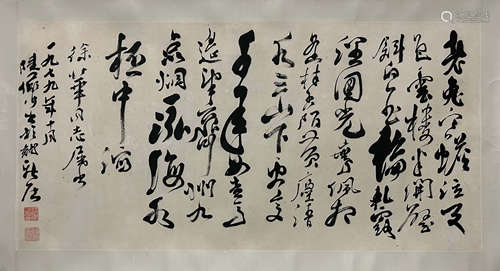 老兔寒蟾泣天
色雲樓半開壁
斜白玉輪軋露
溼團光鸞佩相
逢桂香陌黃塵清
水三山下更變
千年如走馬
遙望齊州九
點烟一泓海水
杯中瀉
徐華同志屬書
一九七九年十月
陸儼少書於